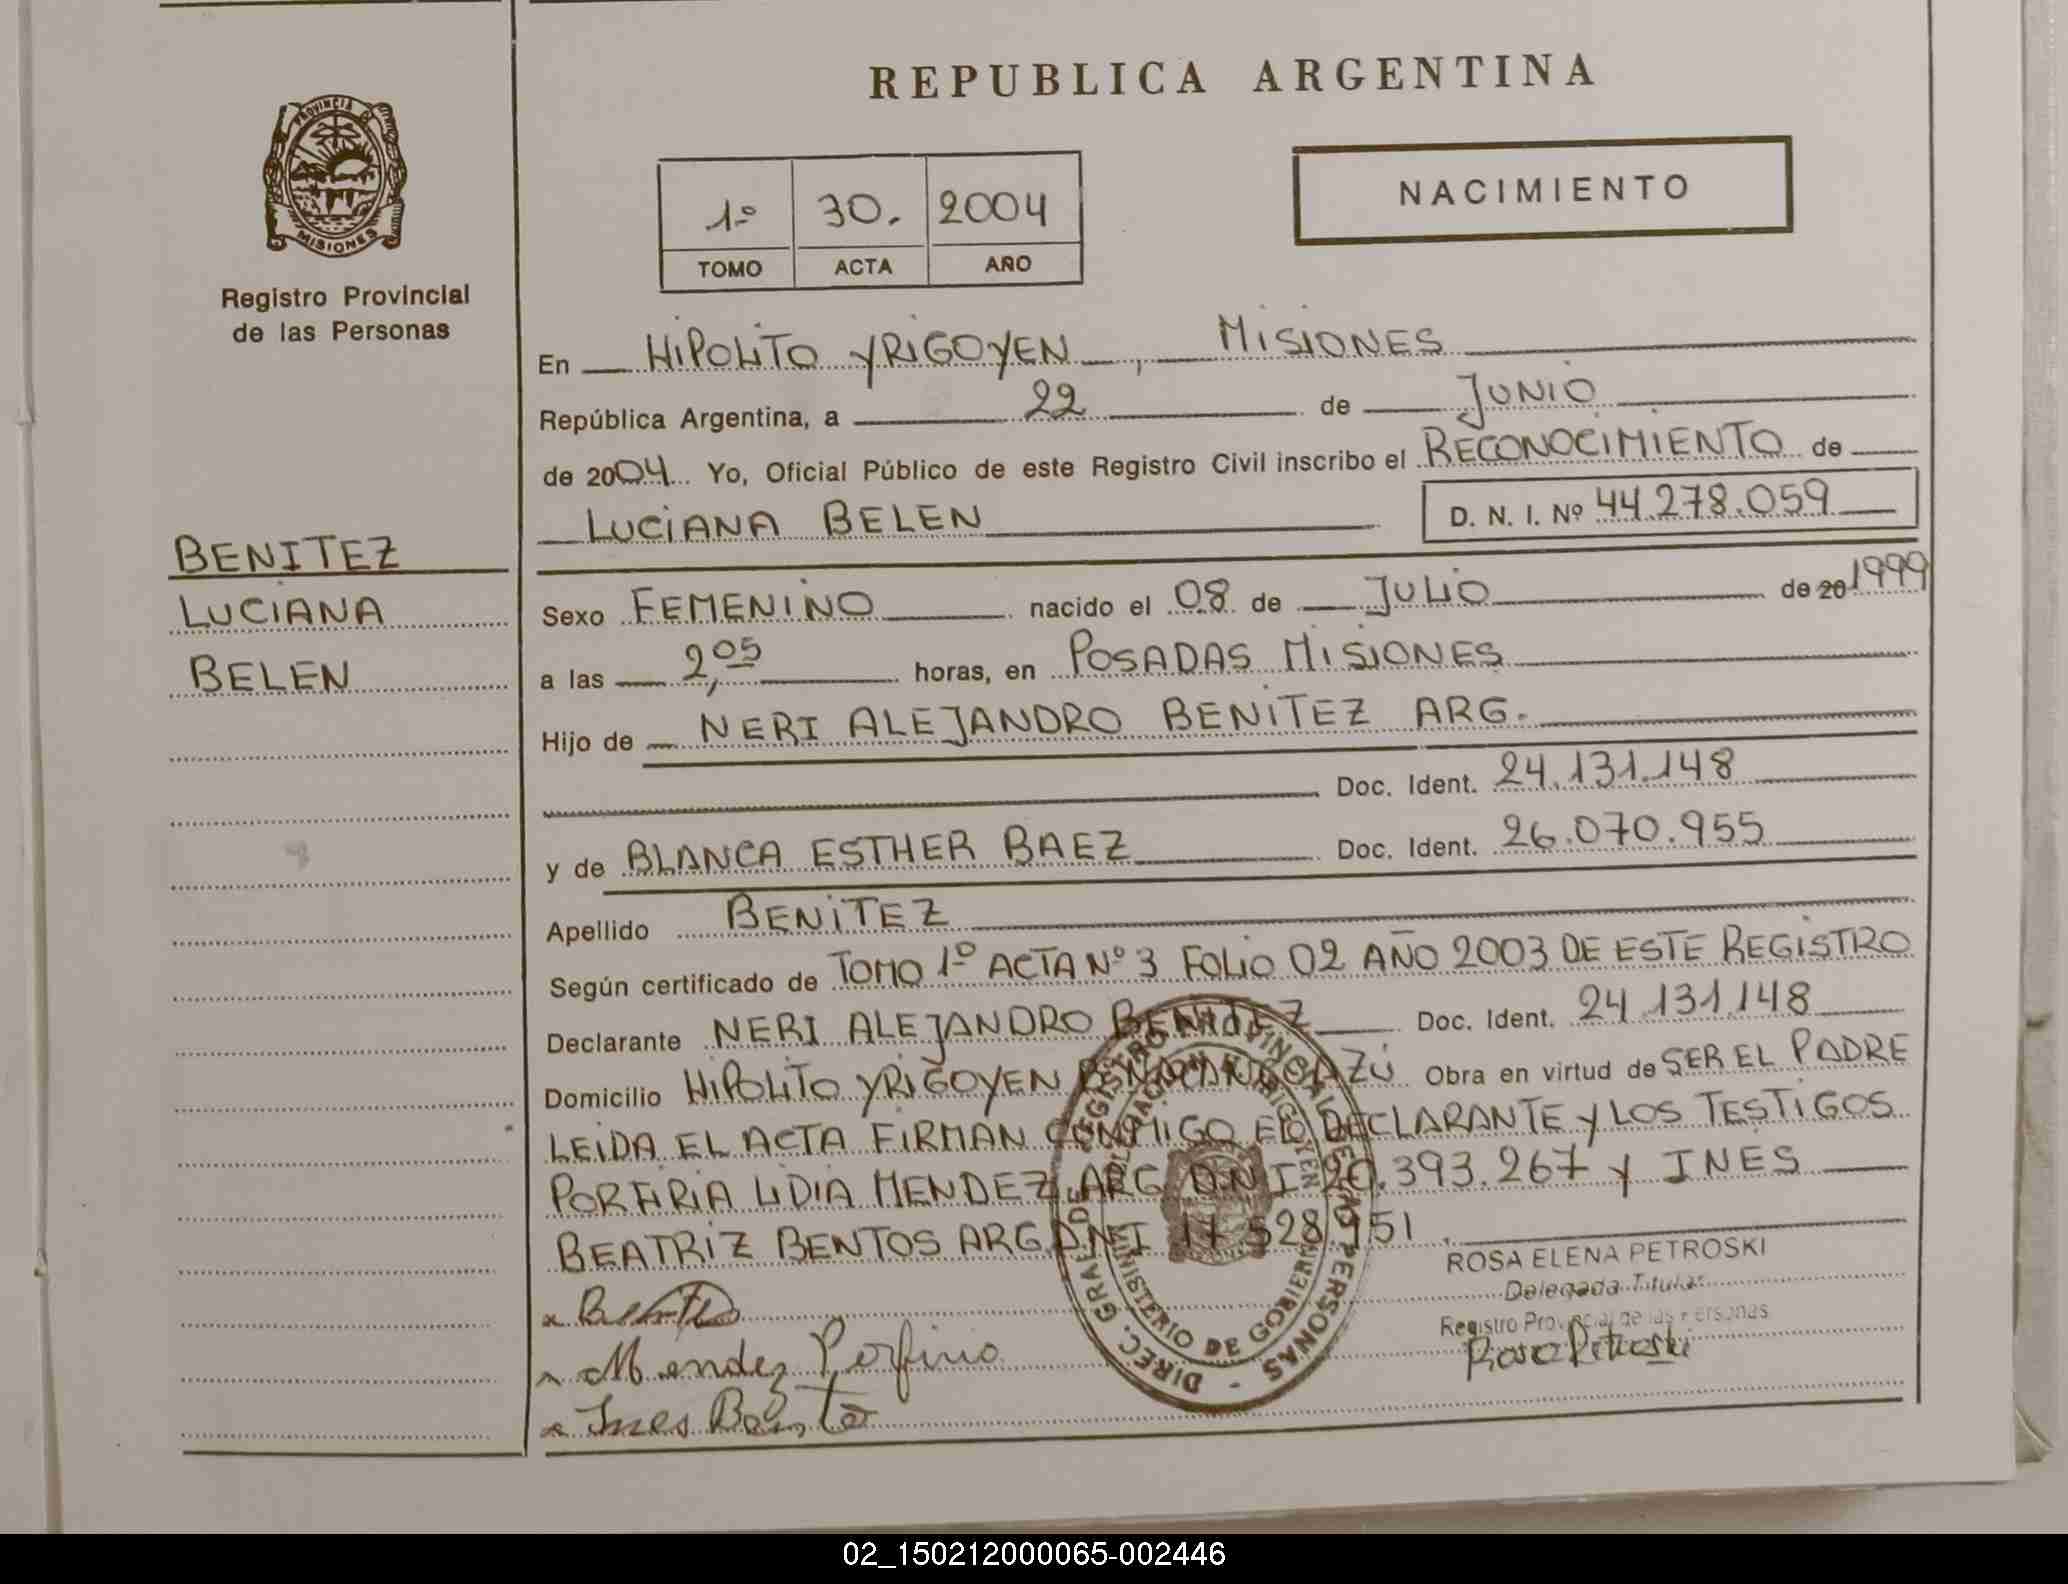 REPUBLICA ARGENTINA
PROVINCIA DE
MISIONES
Registro Provincial
de las Personas
1º 30. 2004
TOMO ACTA AÑO
NACIMIENTO
En HIPOLITO YRIGOYEN, MISIONES
República Argentina, a 22 de JUNIO
de 2004 Yo, Oficial Público de este Registro Civil inscribo el RECONOCIMIENTO de
LUCIANA BELEN D. N. I. Nº 44.278.059
BENITEZ
LUCIANA
BELEN
Sexo FEMENINO nacido el 08 de JULIO de 20 1999
a las 2,05 horas, en POSADAS MISIONES
Hijo de NERI ALEJANDRO BENITEZ ARG.
Doc. Ident. 24.131.148
y de BLANCA ESTHER BAEZ Doc. Ident. 26.070.955
Apellido BENITEZ
Según certificado de TOMO 1º ACTA Nº 3 FOLIO 02 AÑO 2003 DE ESTE REGISTRO
Declarante NERI ALEJANDRO BENITEZ Doc. Ident. 24.131.148
Domicilio HIPOLITO YRIGOYEN Obra en virtud de SER EL PADRE
LEIDA EL ACTA FIRMAN CONMIGO EL DECLARANTE Y LOS TESTIGOS
PORFIRIA LIDIA MENDEZ ARG DNI 20.393.267 Y INES
BEATRIZ BENTOS ARG DNI 17.528.951
ROSA ELENA PETROSKI
Delegada Titular
Registro Provincial de las Personas
Rosa Petroski
Mendez Porfiria
Ines
DIREC. GRAL. DE REGISTRO PROVINCIAL DE LAS PERSONAS
MINISTERIO DE GOBIERNO
02_150212000065-002446